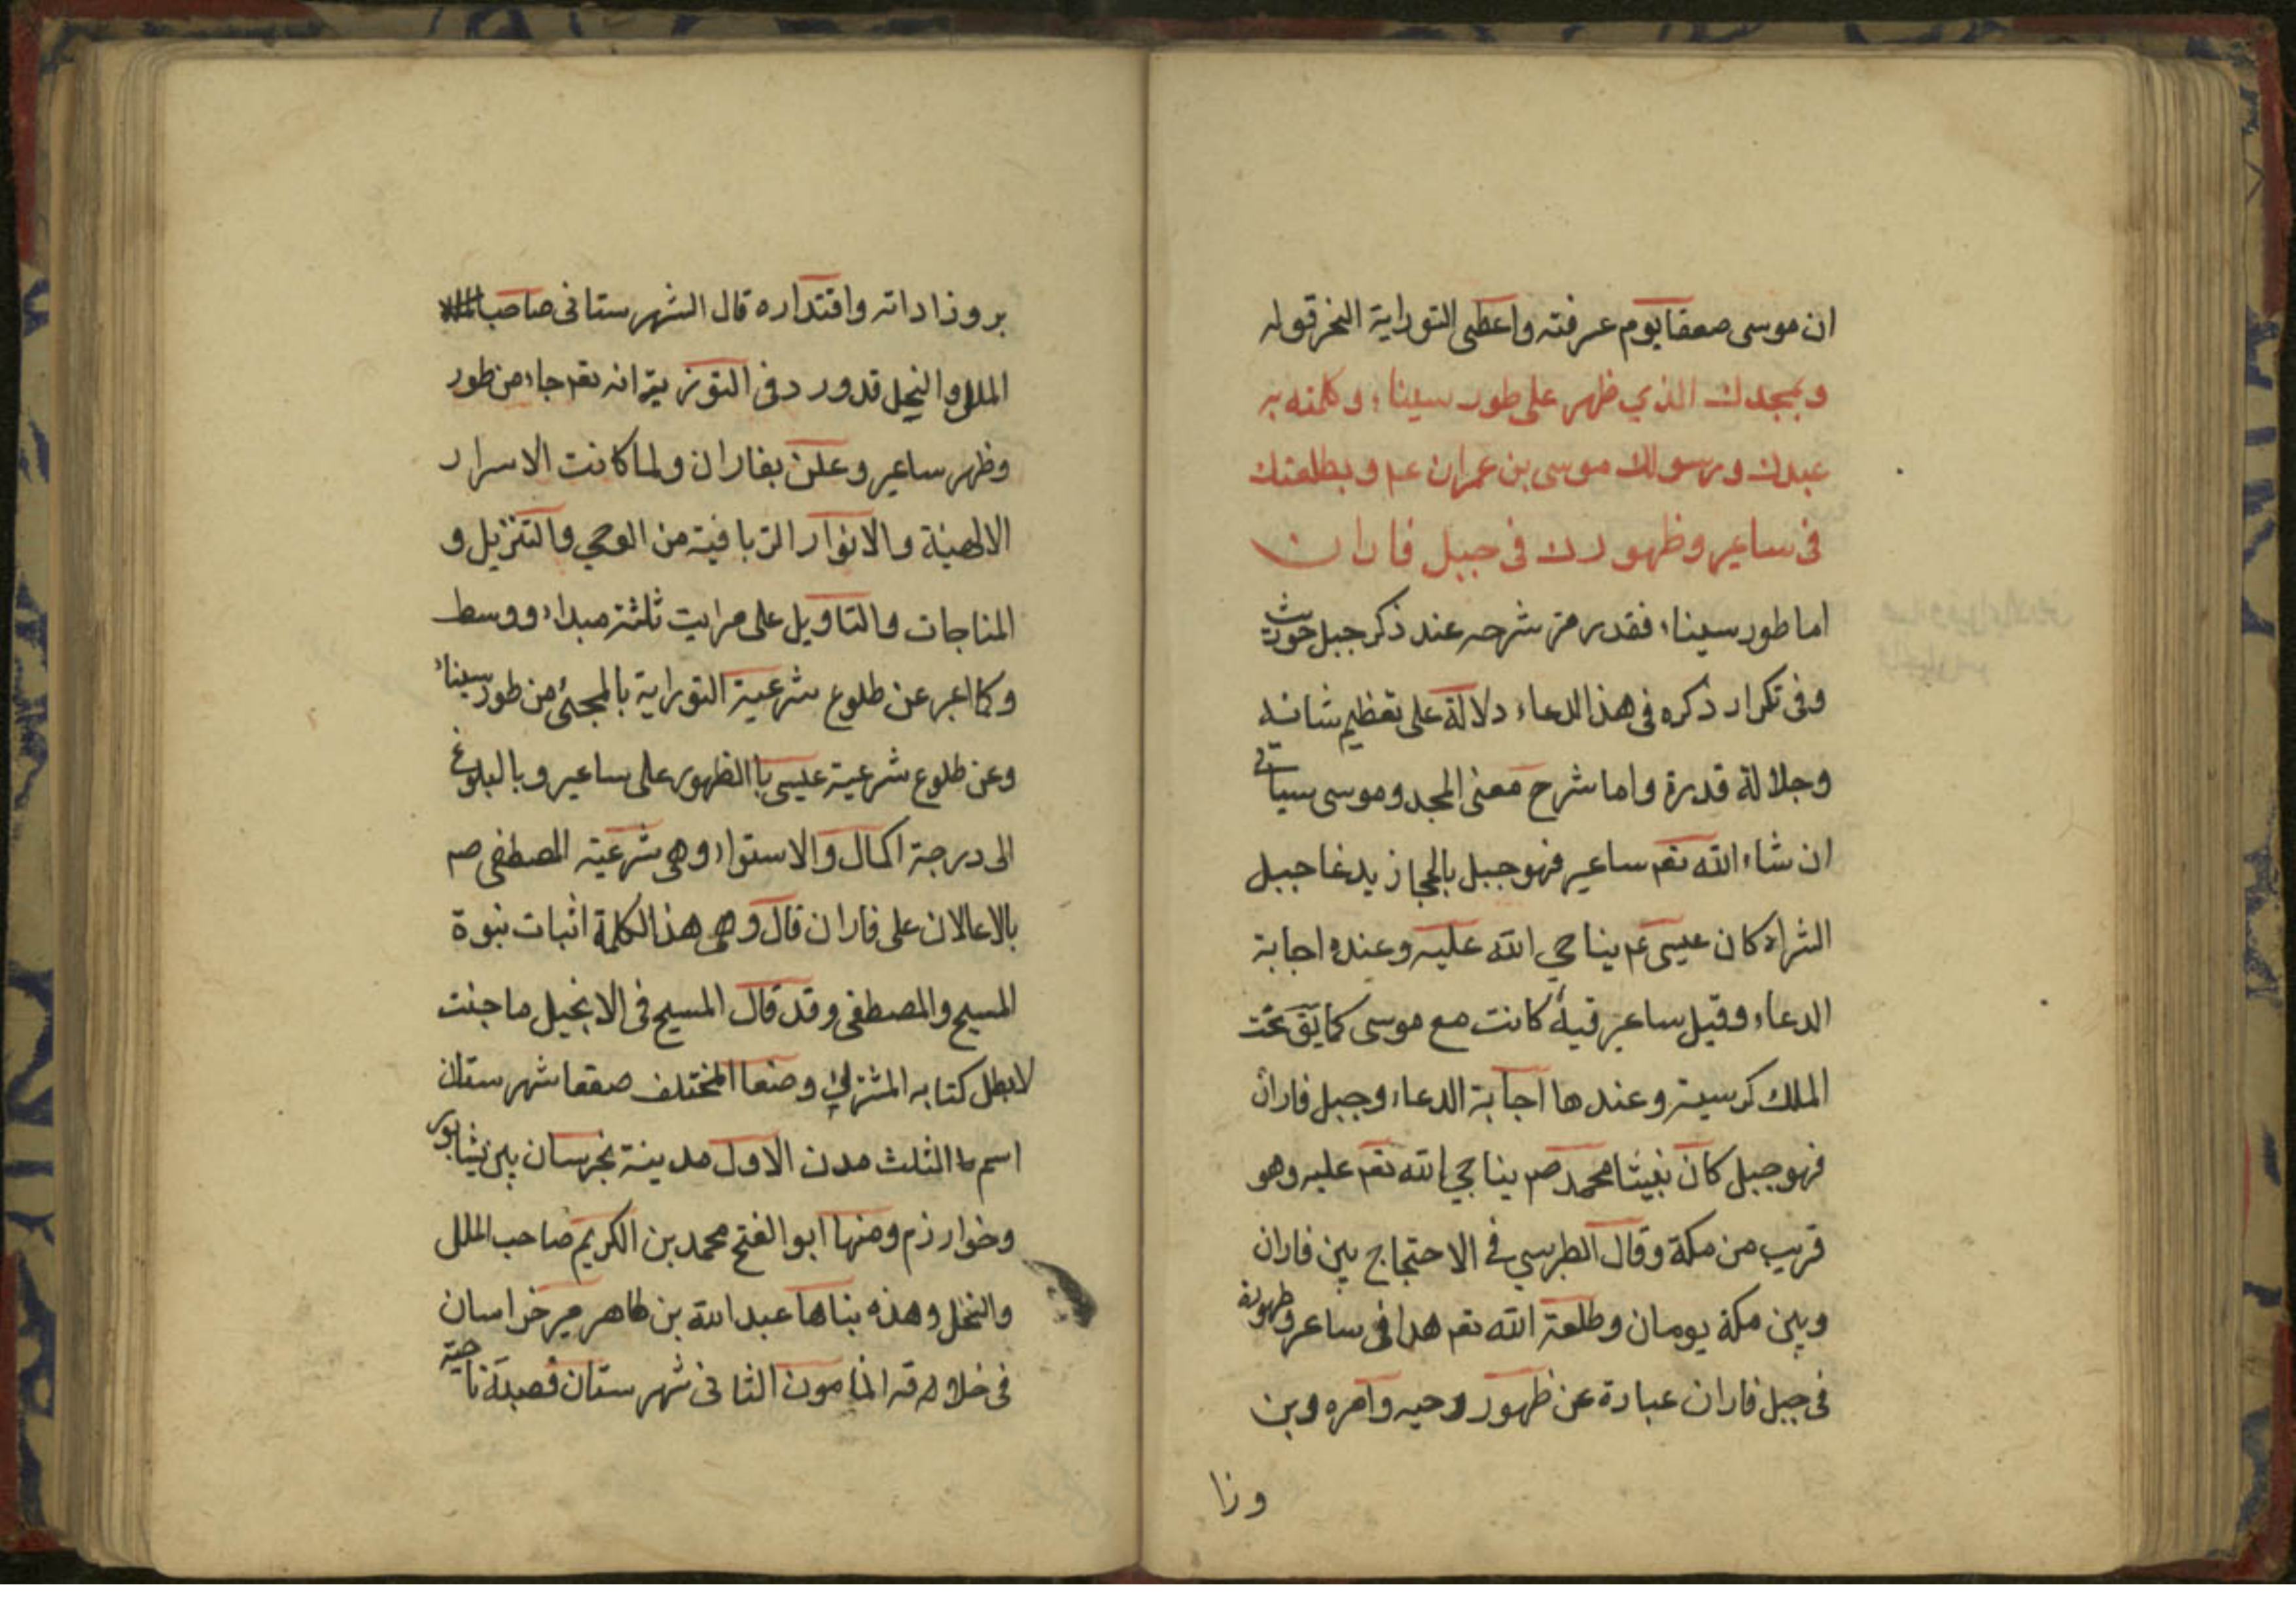 ان موسى صعقا يوم عرفته واعطى التوراية النحر قوله
وبمجدك الذي ظهر على طور سيناء وكلمته به
عبدك ورسولك موسى بن عمران عم وبطلعتك
فى ساعير وظهورك فى جبل فاران
اما طور سيناء فقد مر شرحه عند ذكر جبل حوريث
وفى تكرار ذكره فى هذا الدعاء دلالة على تعظيم شانه
وجلالة قدره واما شرح معنى المجد وموسى سياتى
ان شاء الله تعم ساعير فهو جبل بالحجاز يدعا جبل
الشراه كان عيسى عم يناجي الله عليه وعنده اجابة
الدعاء وقيل ساعير قبة كانت مع موسى كما يق تخت
الملك كرسيه وعندها اجابة الدعاء وجبل فاران
فهو جبل كان نبينا محمد صم يناجي الله تعم عليه وهو
قريب من مكة وقال الطبرسي فى الاحتجاج بين فاران
وبين مكة يومان وطلعة الله تعم هدا فى ساعير وظهوره
فى جبل فاران عبارة عن ظهور وحيه وامره وبن
وزا
بروزاداته واقتداره قال الشهرستانى صاحب
الملل والنحل قد ورد فى التوريته انه تعم جاء من طور
وظهر ساعير وعلن بفاران ولما كانت الاسرار
الالهية والانوار الربانية من الوحي والتنزيل و
المناجات والتاويل على مراتب ثلثة مبداء ووسط
وكما اعبر عن طلوع شرعية التوراية بالمجئ من طور سيناء
وعن طلوع شرعية عيسى باالظهور على ساعير وبالبلوغ
الى درجة اكمال والاستواء وهى شرعية المصطفى صم
بالاعالان على فاران قال وهى هذا الكلمة اثبات نبوة
المسيح والمصطفى وقد قال المسيح فى الانجيل ما جئت
لابطل كتابه المشترك وضعا المختلف صقعا شهرستان
اسم الثلث مدن الاول مدينة بخرسان بين نيشابور
وخوارزم ومنها ابو الفتح محمد بن الكريم صاحب الملل
والنحل وهذه بناها عبد الله بن طاهر مير خراسان
فى خلافة المامون الثانى شهرستان قصبة ناحية